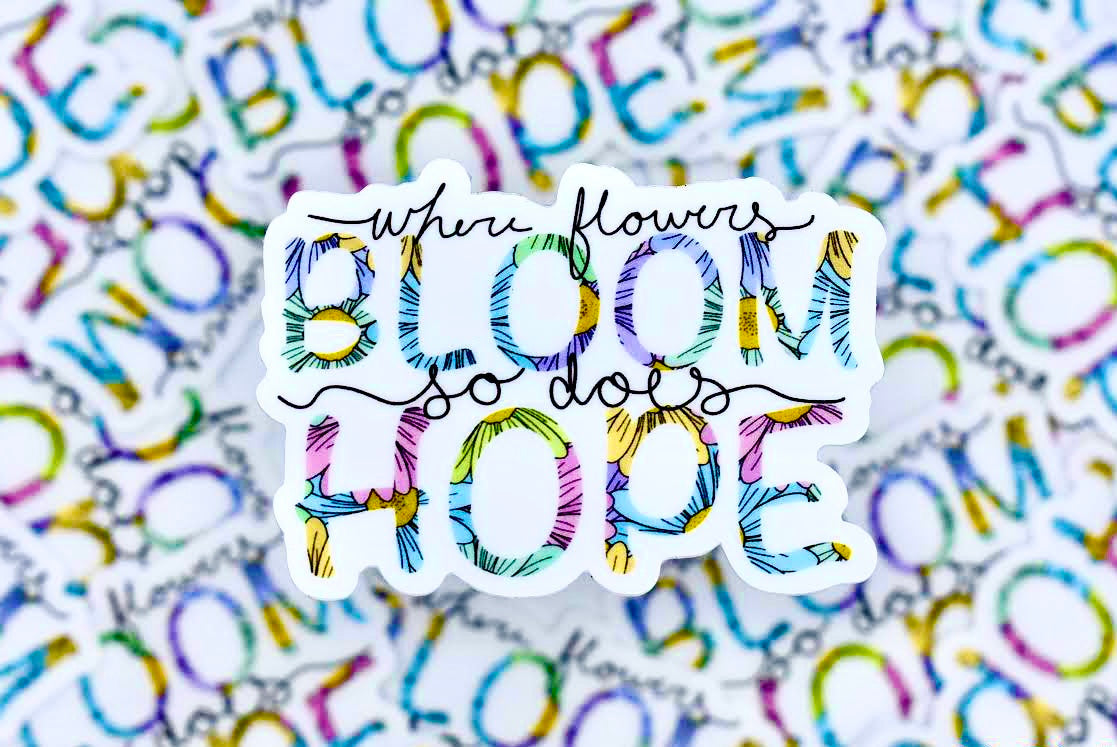 where flowers
BLOOM
so does
HOPE